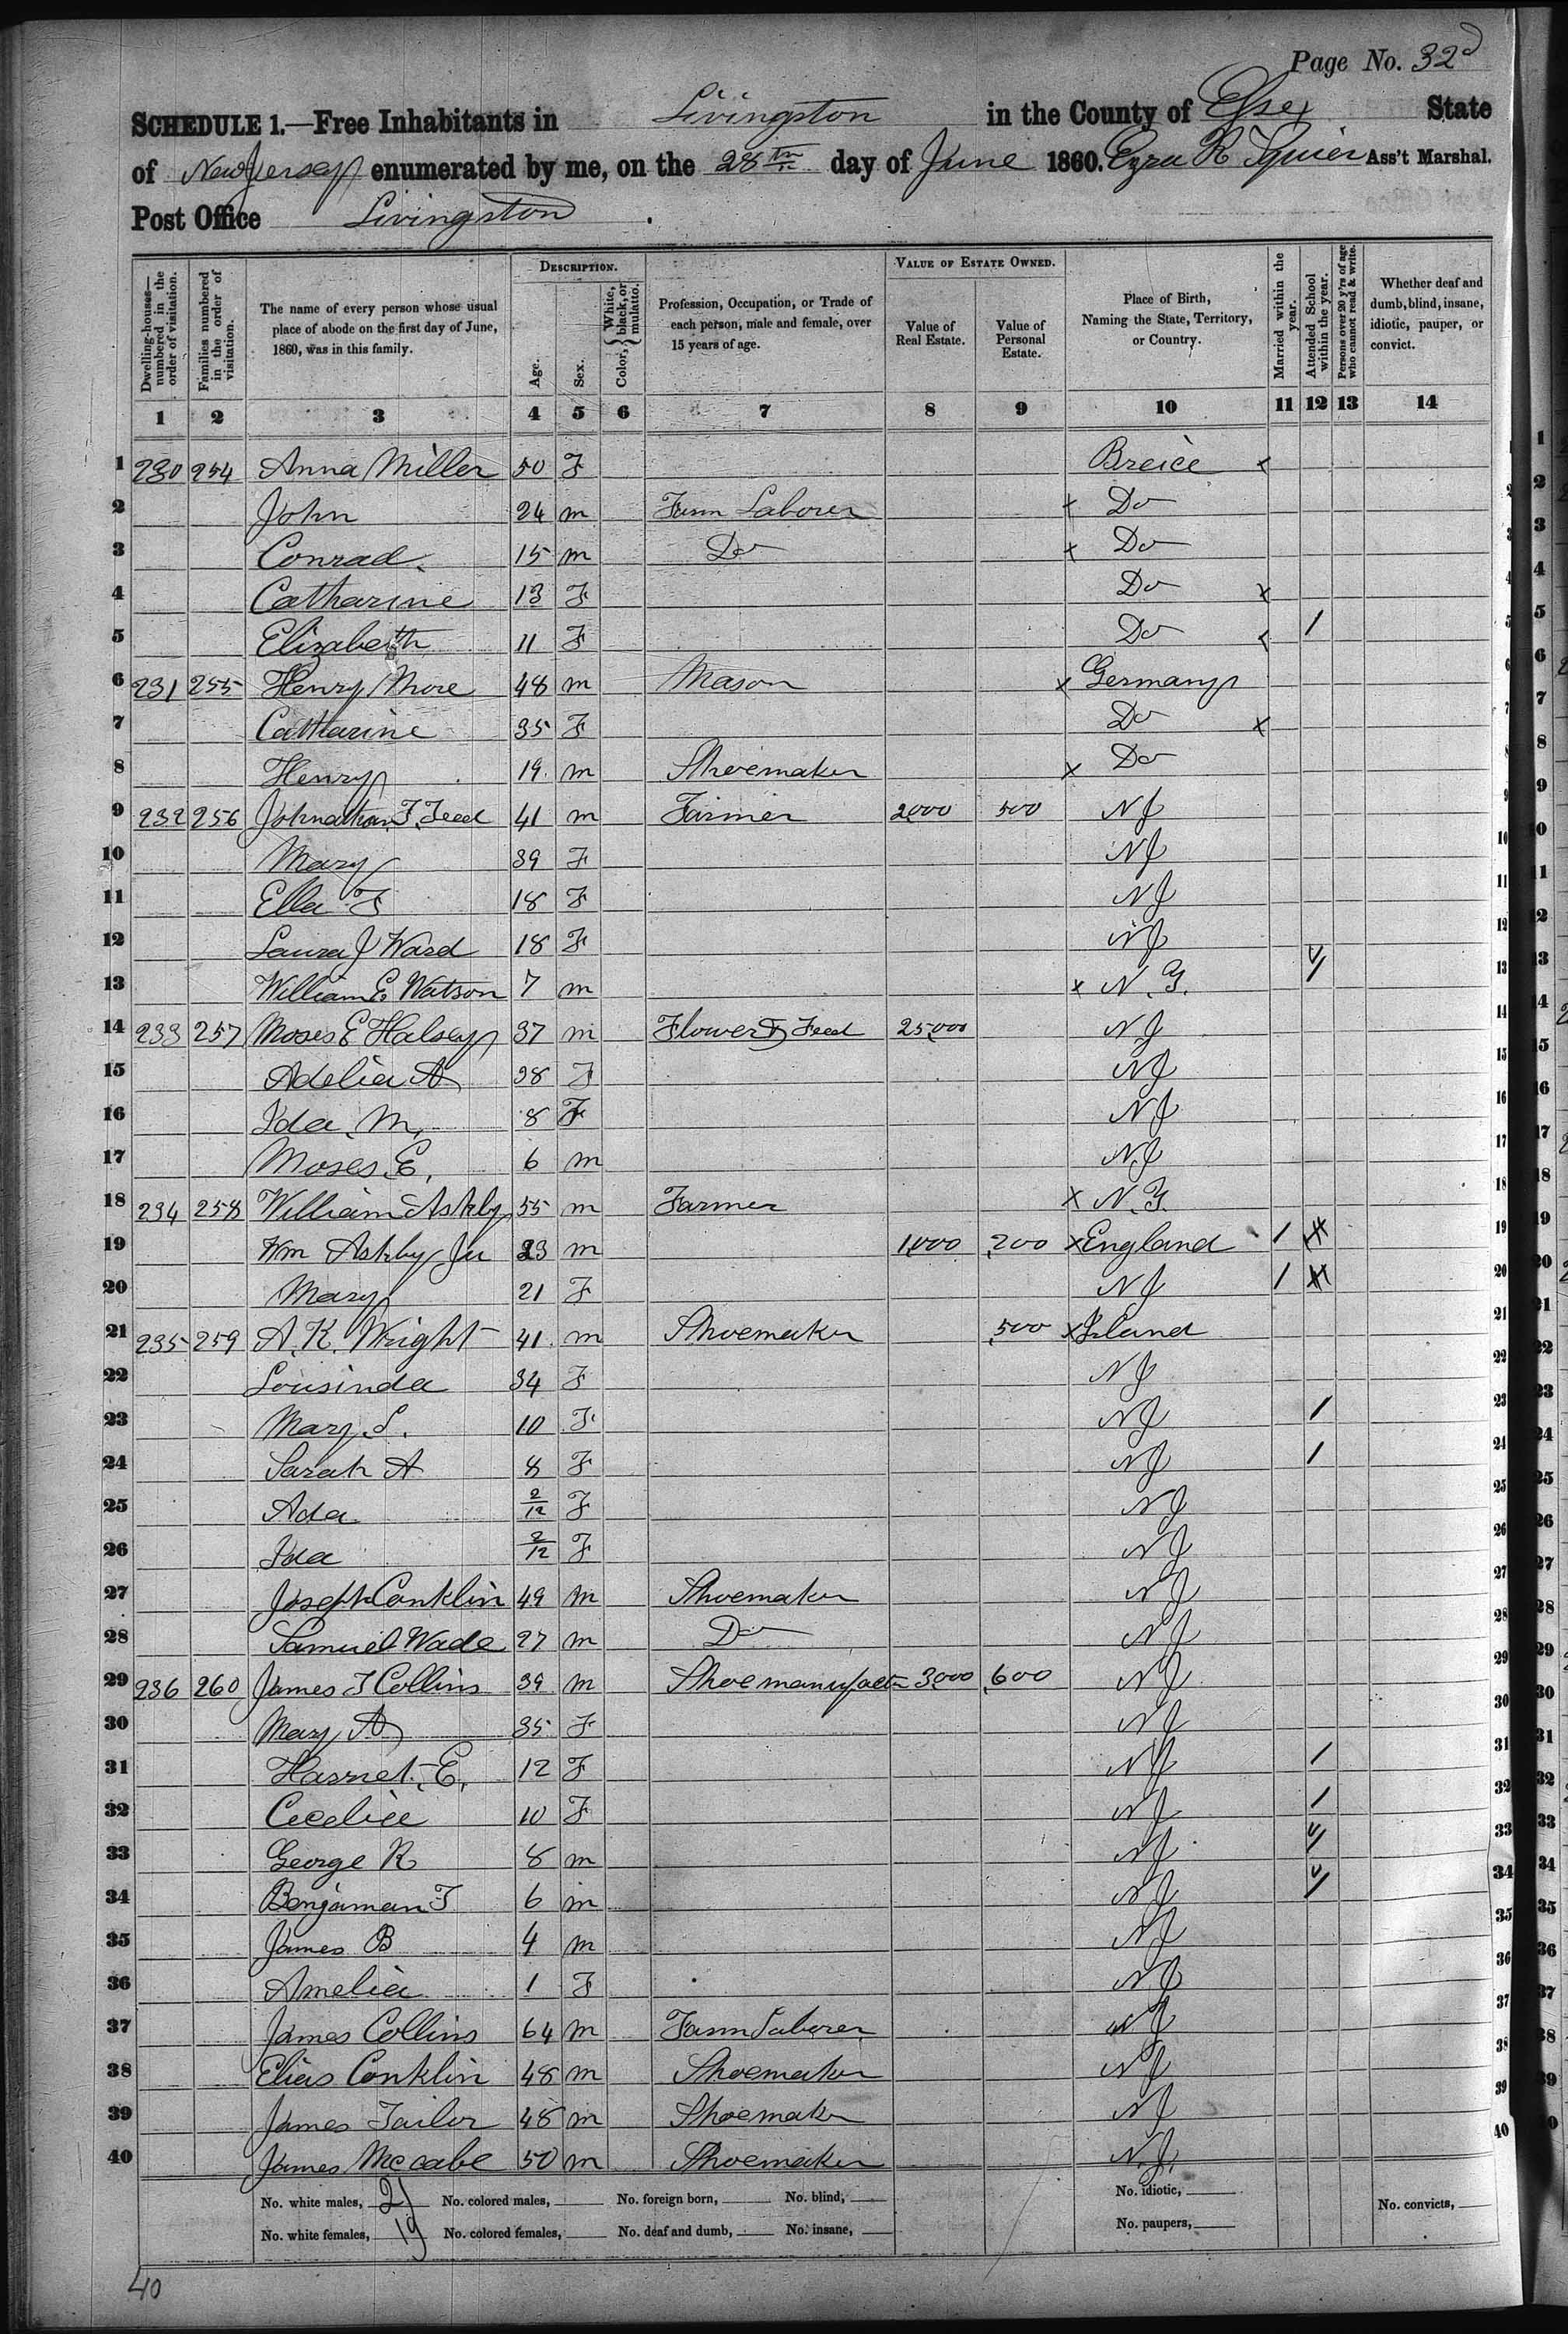 Page No. 32
SCHEDULE 1.—Free Inhabitants in Livingston in the County of Essex State
of New Jersey enumerated by me, on the 28th day of June 1860. Ezra R Squier Ass't Marshal.
Post Office Livingston.
Dwelling-houses—numbered in the order of visitation. Families numbered in the order of visitation. The name of every person whose usual place of abode on the first day of June, 1860, was in this family. DESCRIPTION. Age. Sex. Color, { White, black, or mulatto. Profession, Occupation, or Trade of each person, male and female, over 15 years of age. VALUE OF ESTATE OWNED. Value of Real Estate. Value of Personal Estate. Place of Birth, Naming the State, Territory, or Country. Married within the year. Attended School within the year. Persons over 20 y'rs of age who cannot read & write. Whether deaf and dumb, blind, insane, idiotic, pauper, or convict.
1 2 3 4 5 6 7 8 9 10 11 12 13 14
1 230 254 Anna Miller 50 F x
2 John 24 m Farm Laborer x Do
3 Conrad 15 m Do x Do
4 Catharine 13 F Do x
5 Elizabeth 11 F Do x /
6 231 255 Henry More 48 m Mason x Germany
7 Catharine 35 F Do x
8 Henry 19 m Shoemaker x Do
9 232 256 Johnathan F. Teed 41 m Farmer 2000 500 NJ
10 Mary 39 F NJ
11 Ella F 18 F NJ
12 Laura J Ward 18 F NJ
13 William E. Watson 7 m x N.Y. /
14 233 257 Moses E Halsey 37 m Flower & Feed 25000 NJ
15 Adelia A 38 F NJ
16 Ida. M. 8 F NJ
17 Moses. E. 6 m NJ
18 234 258 William Ashby 55 m Farmer x N.Y.
19 Wm Ashby Ju 23 m 1000 200 x England /
20 Mary 21 F NJ /
21 235 259 A. K. Wright 41 m Shoemaker 500 x Ireland
22 Lousinda 34 F NJ
23 Mary. S. 10 F NJ /
24 Sarah A 8 F NJ /
25 Ada 2/12 F NJ
26 Ida 2/12 F NJ
27 Joseph Conklin 49 m Shoemaker NJ
28 Samuel Wade 27 m Do NJ
29 236 260 James T Collins 39 m Shoe manufact 3000 600 NJ
30 Mary A 35 F NJ
31 Harriet. E. 12 F NJ /
32 Cecelia 10 F NJ /
33 George R 8 m NJ /
34 Benjaman T 6 m NJ /
35 James B 4 m NJ
36 Amelia 1 F NJ
37 James Collins 64 m Farm Laborer NJ
38 Elias Conklin 48 m Shoemaker NJ
39 James Tailor 48 m Shoemaker NJ
40 James Mccabe 50 m Shoemaker N.J.
No. white males, 21 No. colored males, No. foreign born, No. blind, No. idiotic, No. convicts,
No. white females, 19 No. colored females, No. deaf and dumb, No. insane, No. paupers,
40